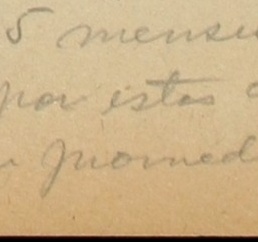 5 mensu
por estos
promed